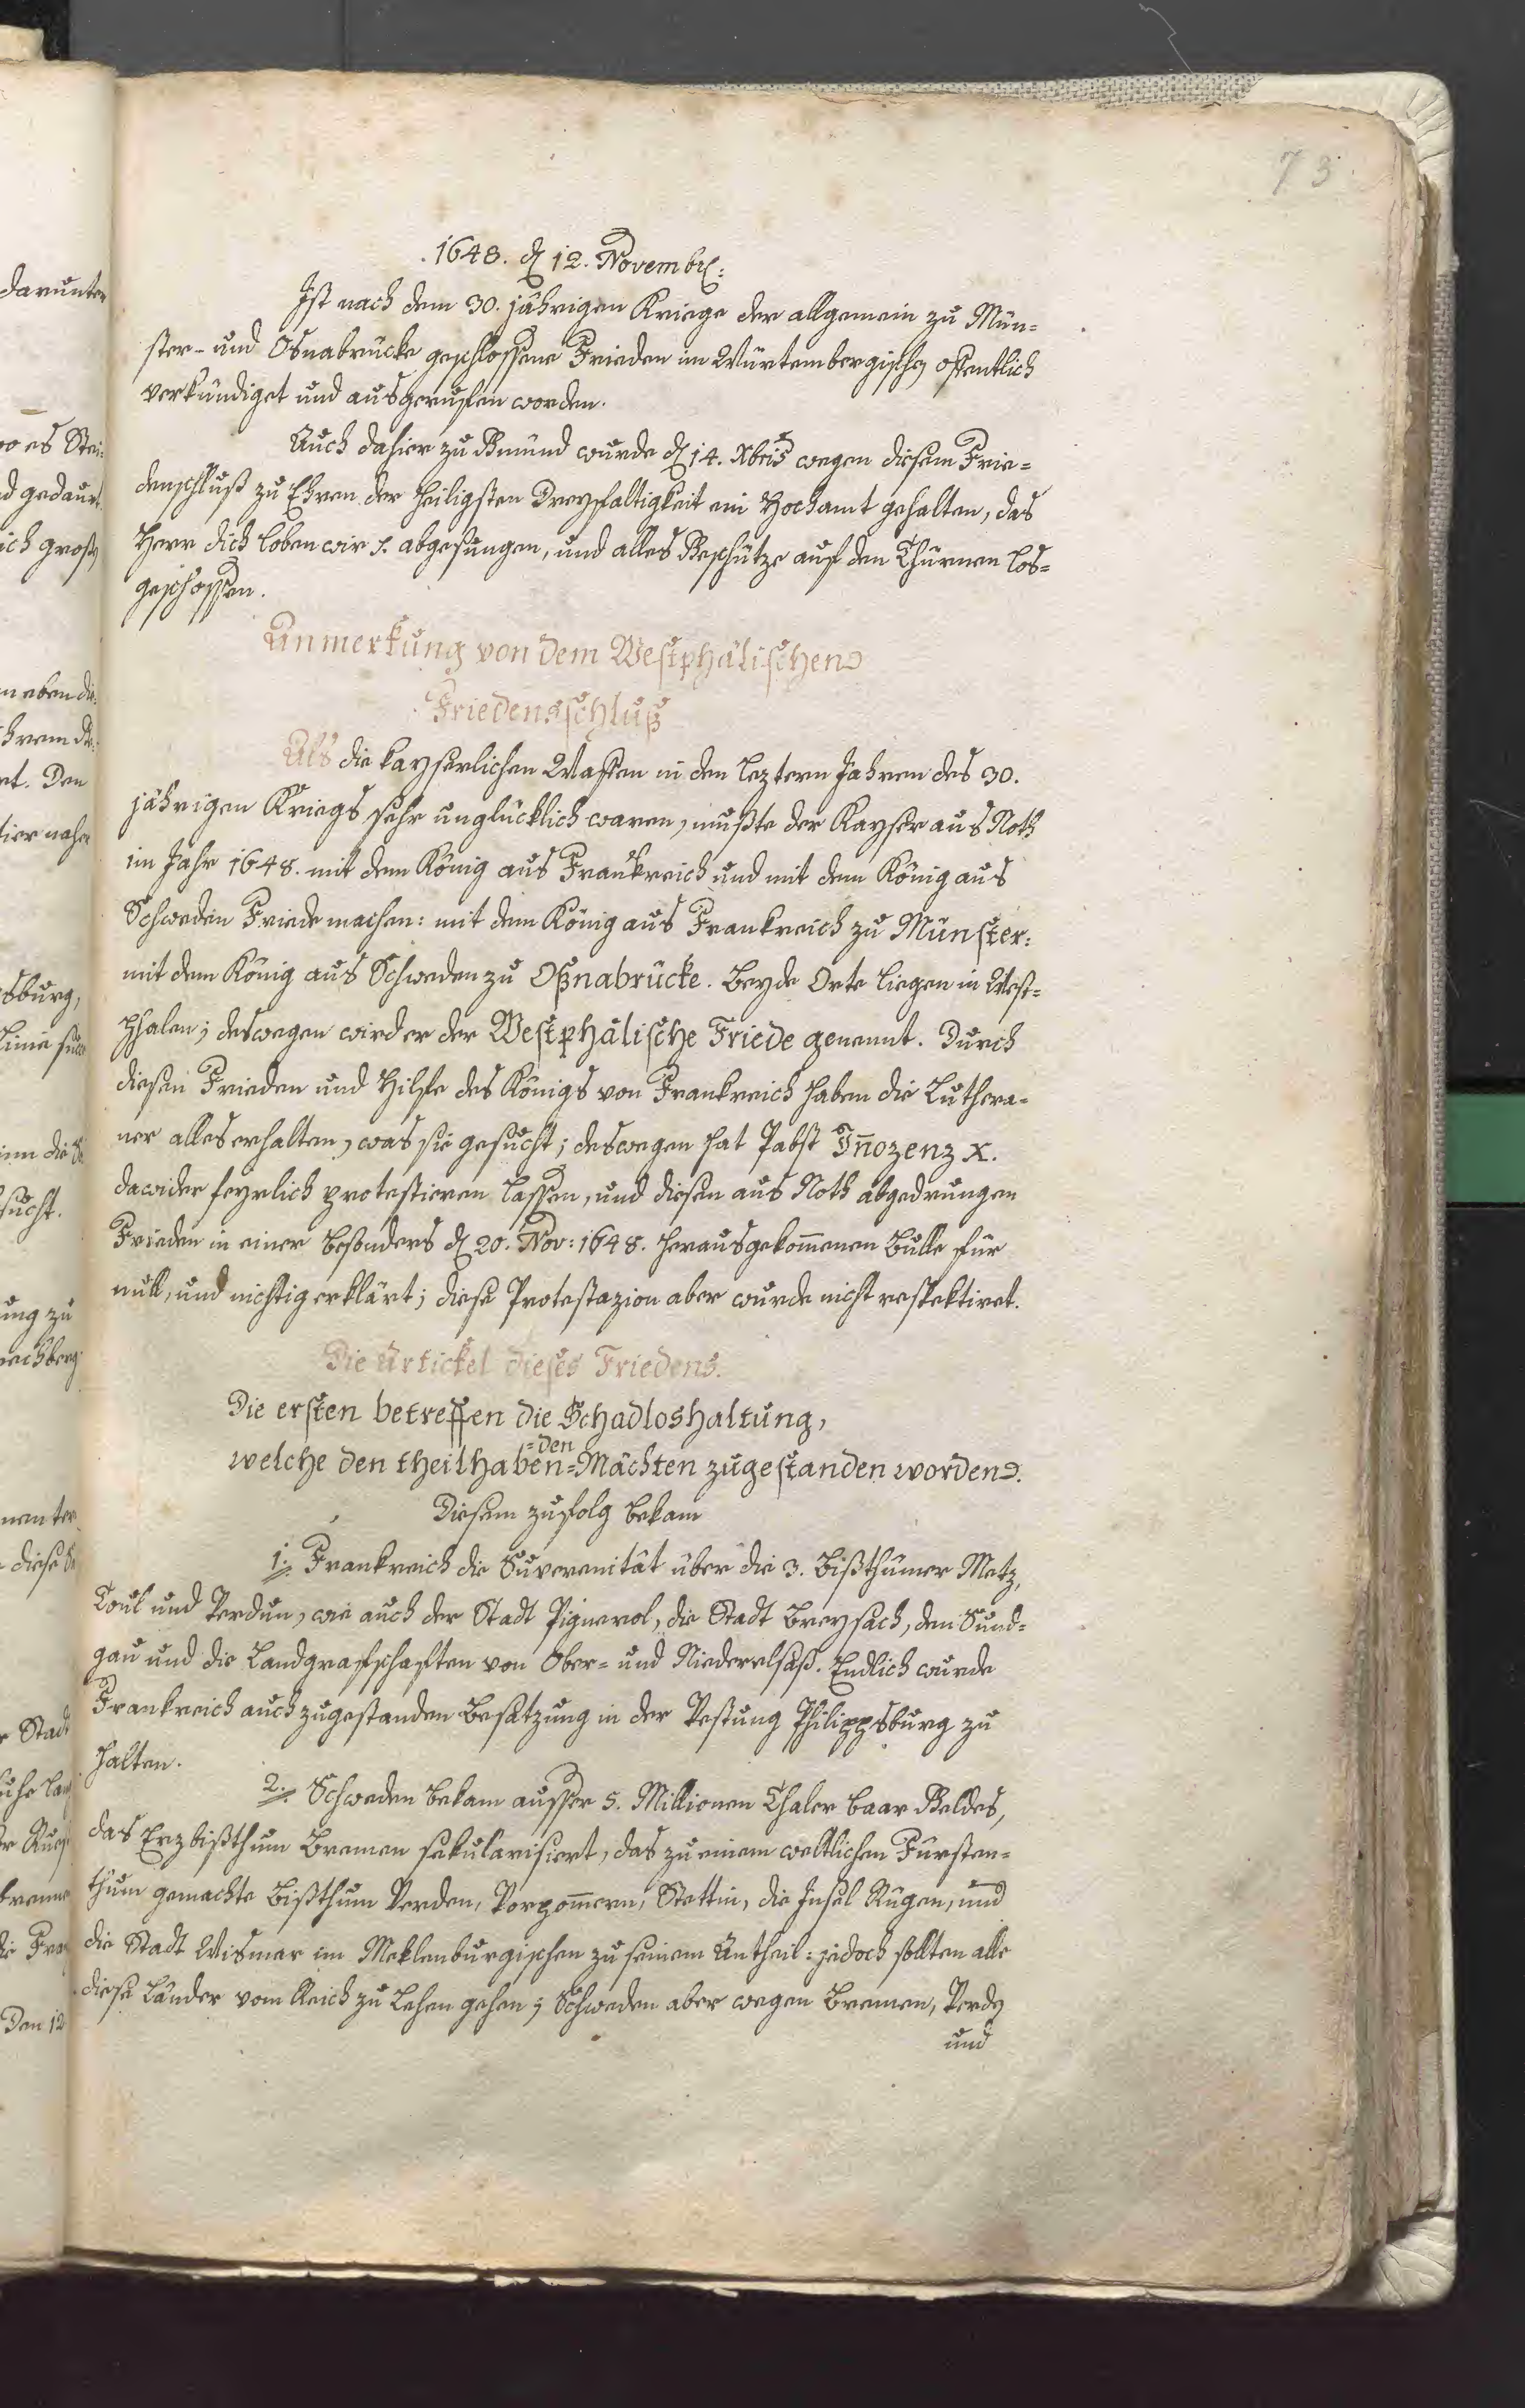 73
1648. dẽ 12. Novembr:
Ist nach dem 30. jährigen Kriege der allgemein zu Mün=
ster- und Oßnabrücke geschlossene Frieden im Würtembergischen offentlich
verkündiget und ausgeruffen worden.
Auch dahier zu Gmünd wurde den 14. Xbris wegen diesem Frie=
denschluß zu Ehren der heiligsten Dreyfaltigkeit ein Hochamt gehalten, das
Herr dich loben wir abgesungen, und alles Geschütze auf den Thürnen los=
geschossen.
Anmerkung von dem Westphälischen
Friedensschluß
Als die kayserlichen Waffen in den leztern Jahren des 30.
jährigen Kriegs sehr unglücklich waren, mußte der Kayser aus Noth
im Jahr 1648. mit dem König aus Frankreich und mit dem König aus
Schweden Friede machen: mit dem König aus Frankreich zu Münster:
mit dem König aus Schweden zu Oßnabrücke. Beyde Orte liegen in West=
phalen; deswegen wird er der Westphälische Friede genennt. Durch
diesen Frieden und Hilfe des Königs von Frankreich haben die Luthera=
ner alles erhalten, was sie gesucht; deswegen hat Pabst Iñozenz X.
dawider feyrlich protestieren lassen, und diesen aus Noth abgedrungen
Frieden in einer besonders den 20. Nov: 1648. herausgekom̃enen Bulle für
null, und nichtig erklärt; diese Protestazion aber wurde nicht respektiret.
Die Artickel dieses Friedens.
Die ersten betreffen die Schadloshaltung,
welche den theilhaben=den= Mächten zugestanden worden.
Diesem zufolg bekam
1. Frankreich die Suverenität über die 3. Bißthümer Metz,
Toul und Verdun, wie auch der Stadt Pignerol, die Stadt Breysach, den Sund=
gau und die Landgrafschaften von Ober= und Niederelsaß. Endlich wurde
Frankreich auch zugestanden Besatzung in der Vestung Philippsburg zu
halten.
2. Schweden bekam ausser 5. Millionen Thaler baar Geldes,
das Erzbißthum Bremen sekularisiert, das zu einem weltlichen Fürsten=
thum gemachte Bißthum Verden, Vorpom̃ern, Stettin, die Insel Rügen, und
die Stadt Wismar im Meklenburgischen zu seinem Antheil: jedoch sollten alle
diese Länder vom Reich zu Lehen gehen; Schweden aber wegen Bremen, Verden
und